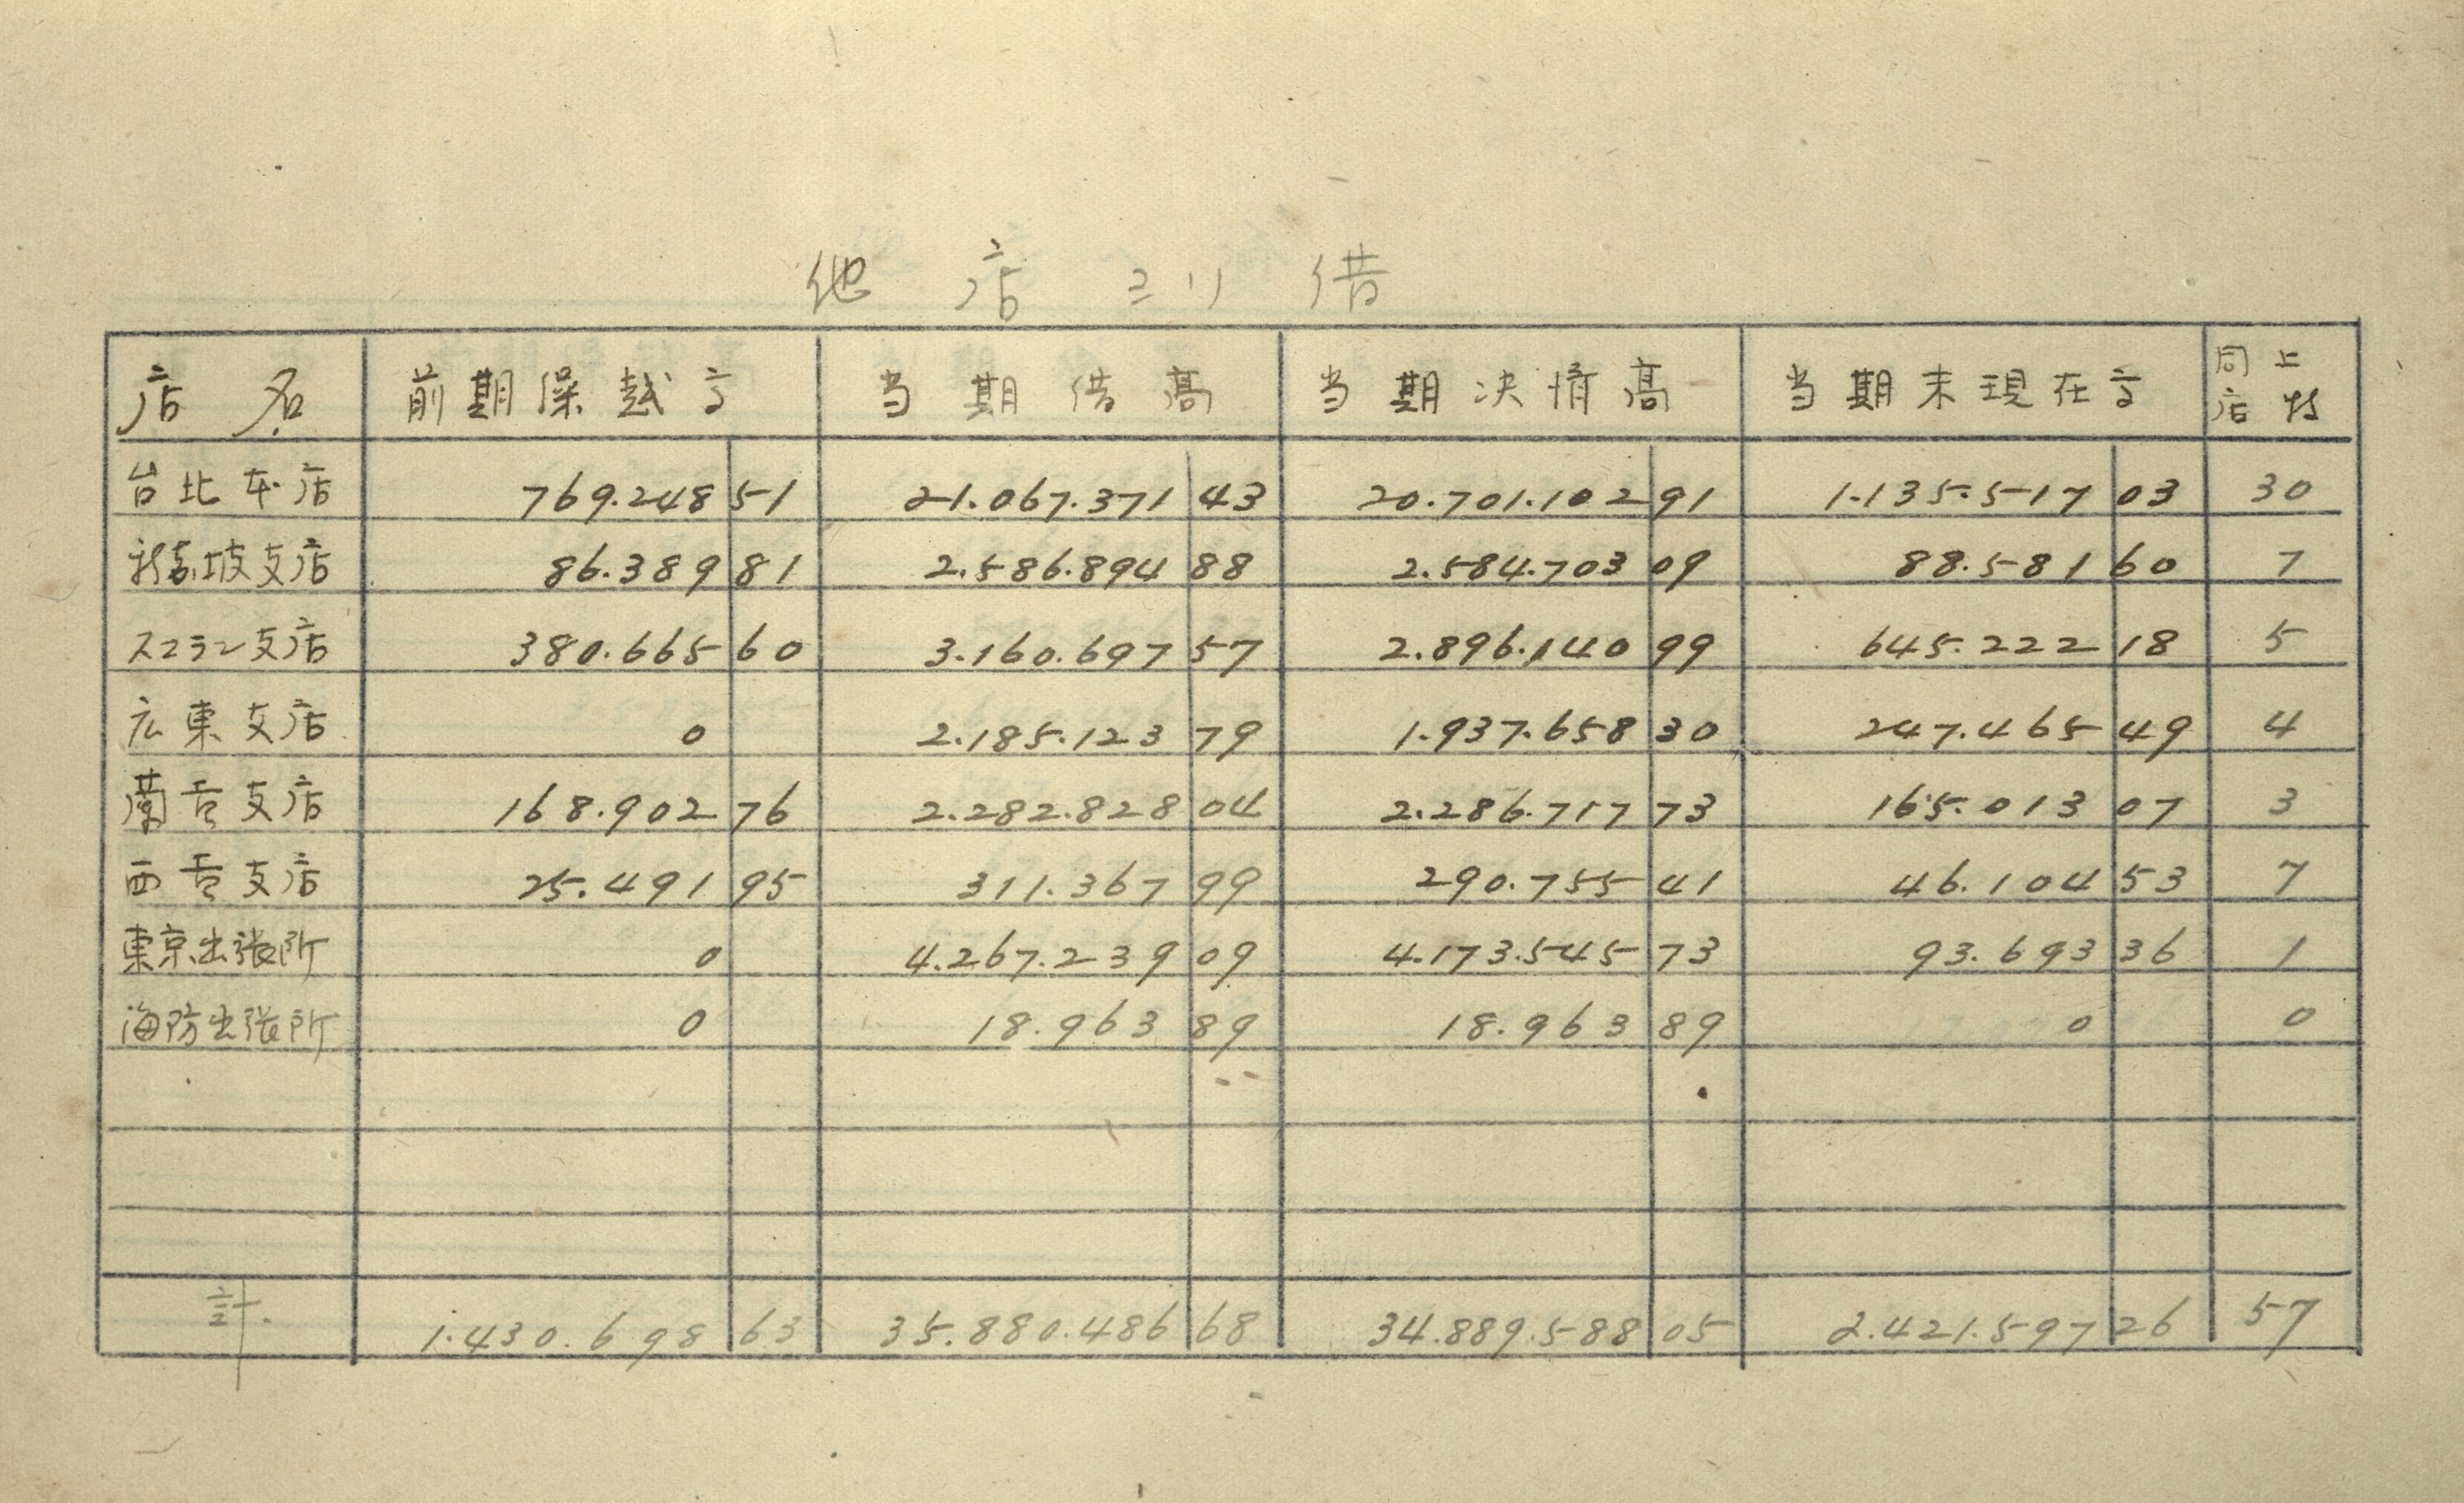 他店ヨリ借
店名 前期繰越高 当期借高 当期決済高 当期末現在高 同上店数
台北本店 769.248 51 21.067.371 43 20.701.102 91 1.135.517 03 30
新嘉坡支店 86.389 81 2.586.894 88 2.584.703 09 88.581 60 7
スマラン支店 380.665 60 3.160.697 57 2.896.140 99 645.222 18 5
広東支店 0 2.185.123 79 1.937.658 30 247.465 49 4
蘭貢支店 168.902 76 2.282.828 04 2.286.717 73 165.013 07 3
西貢支店 25.491 95 311.367 99 290.755 41 46.104 53 7
東京出張所 0 4.267.239 09 4.173.545 73 93.693 36 1
海防出張所 0 18.963 89 18.963 89 0 0
計 1.430.698 63 35.880.486 68 34.889.588 05 2.421.597 26 57